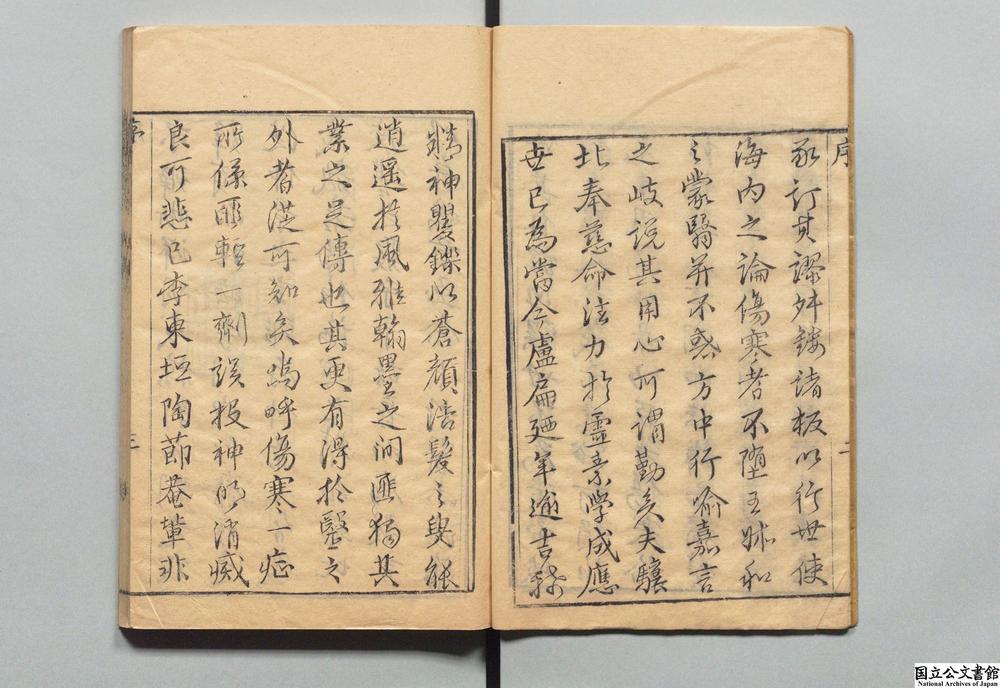 序
二
訂其謬舛鋟諸板以行世使
海内之論傷寒者不墮王叔和
之蒙翳并不惑方中行喻嘉言
之歧説其用心可謂勤矣夫驥
北奉慈命注力於靈素学成應
世已為當今盧扁廼年逾古稀
精神矍鑠以蒼顔浩髮之叟能
逍遥於風雅翰墨之间匪獨其
業之足傳也其更有得於醫之
外者從可知矣嗚呼傷寒一症
所係匪輕一劑誤投神明消滅
良可悲已李東垣陶節菴軰非
序
三
国立公文書館
National Archives of Japan